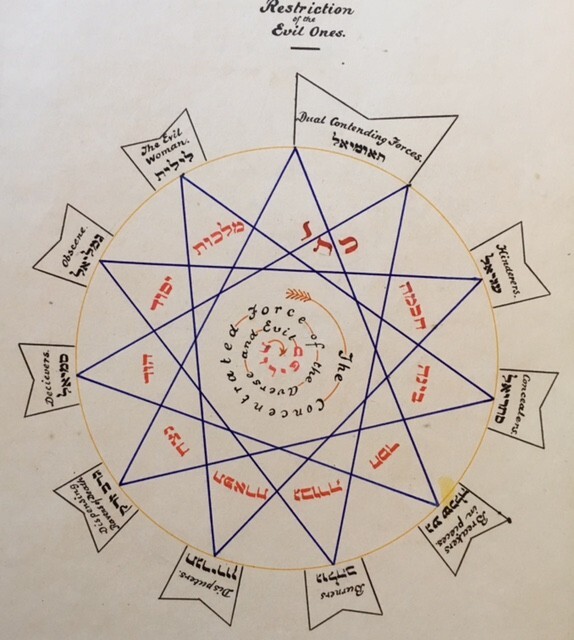 Restriction
of the
Evil Ones.
Dual Contending Forces.
תאומיאל
Hinderers.
Concealers.
סתריאל
Breakers
in pieces.
Burners
Disputers.
תגרירון
Dispensing
Ravens of Death
Decievers.
סמיאל
Obscene.
גמליאל
The Evil
Woman.
לילית
כתר
חכמה
בינה
חסד
גבורה
תפארת
נצח
הוד
יסוד
מלכות
The Concentrated Force of the Averse and Evil